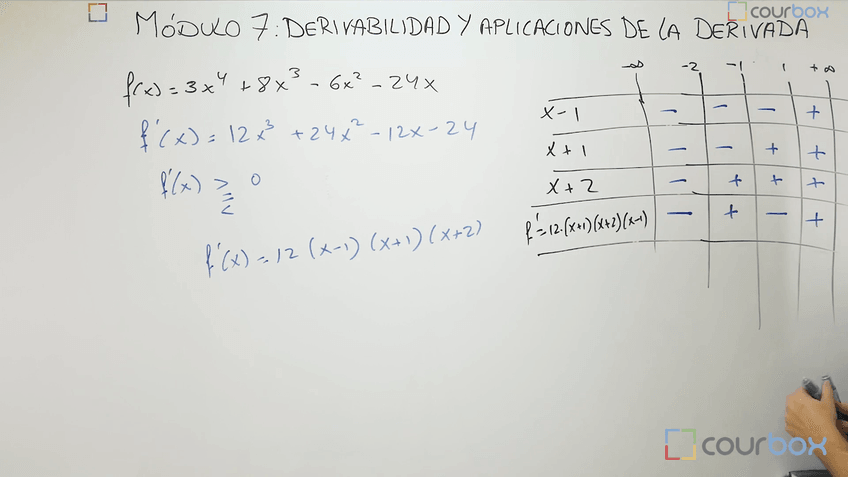 MÓDULO 7: DERIVABILIDAD Y APLICACIONES DE LA DERIVADA
courbox
f(x) = 3x⁴ + 8x³ - 6x² - 24x
f'(x) = 12x³ + 24x² - 12x - 24
f'(x) > 0
=
<
f'(x) = 12 (x-1) (x+1) (x+2)
-∞ -2 -1 1 +∞
x-1 - - - +
x+1 - - + +
x+2 - + + +
f'=12·(x+1)(x+2)(x-1) - + - +
courbox